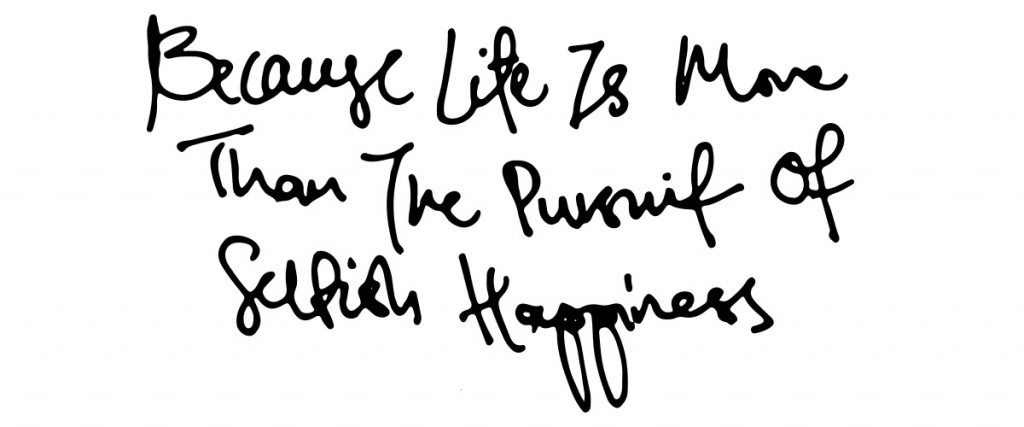 Because Life Is More
Than The Pursuit Of
Selfish Happiness